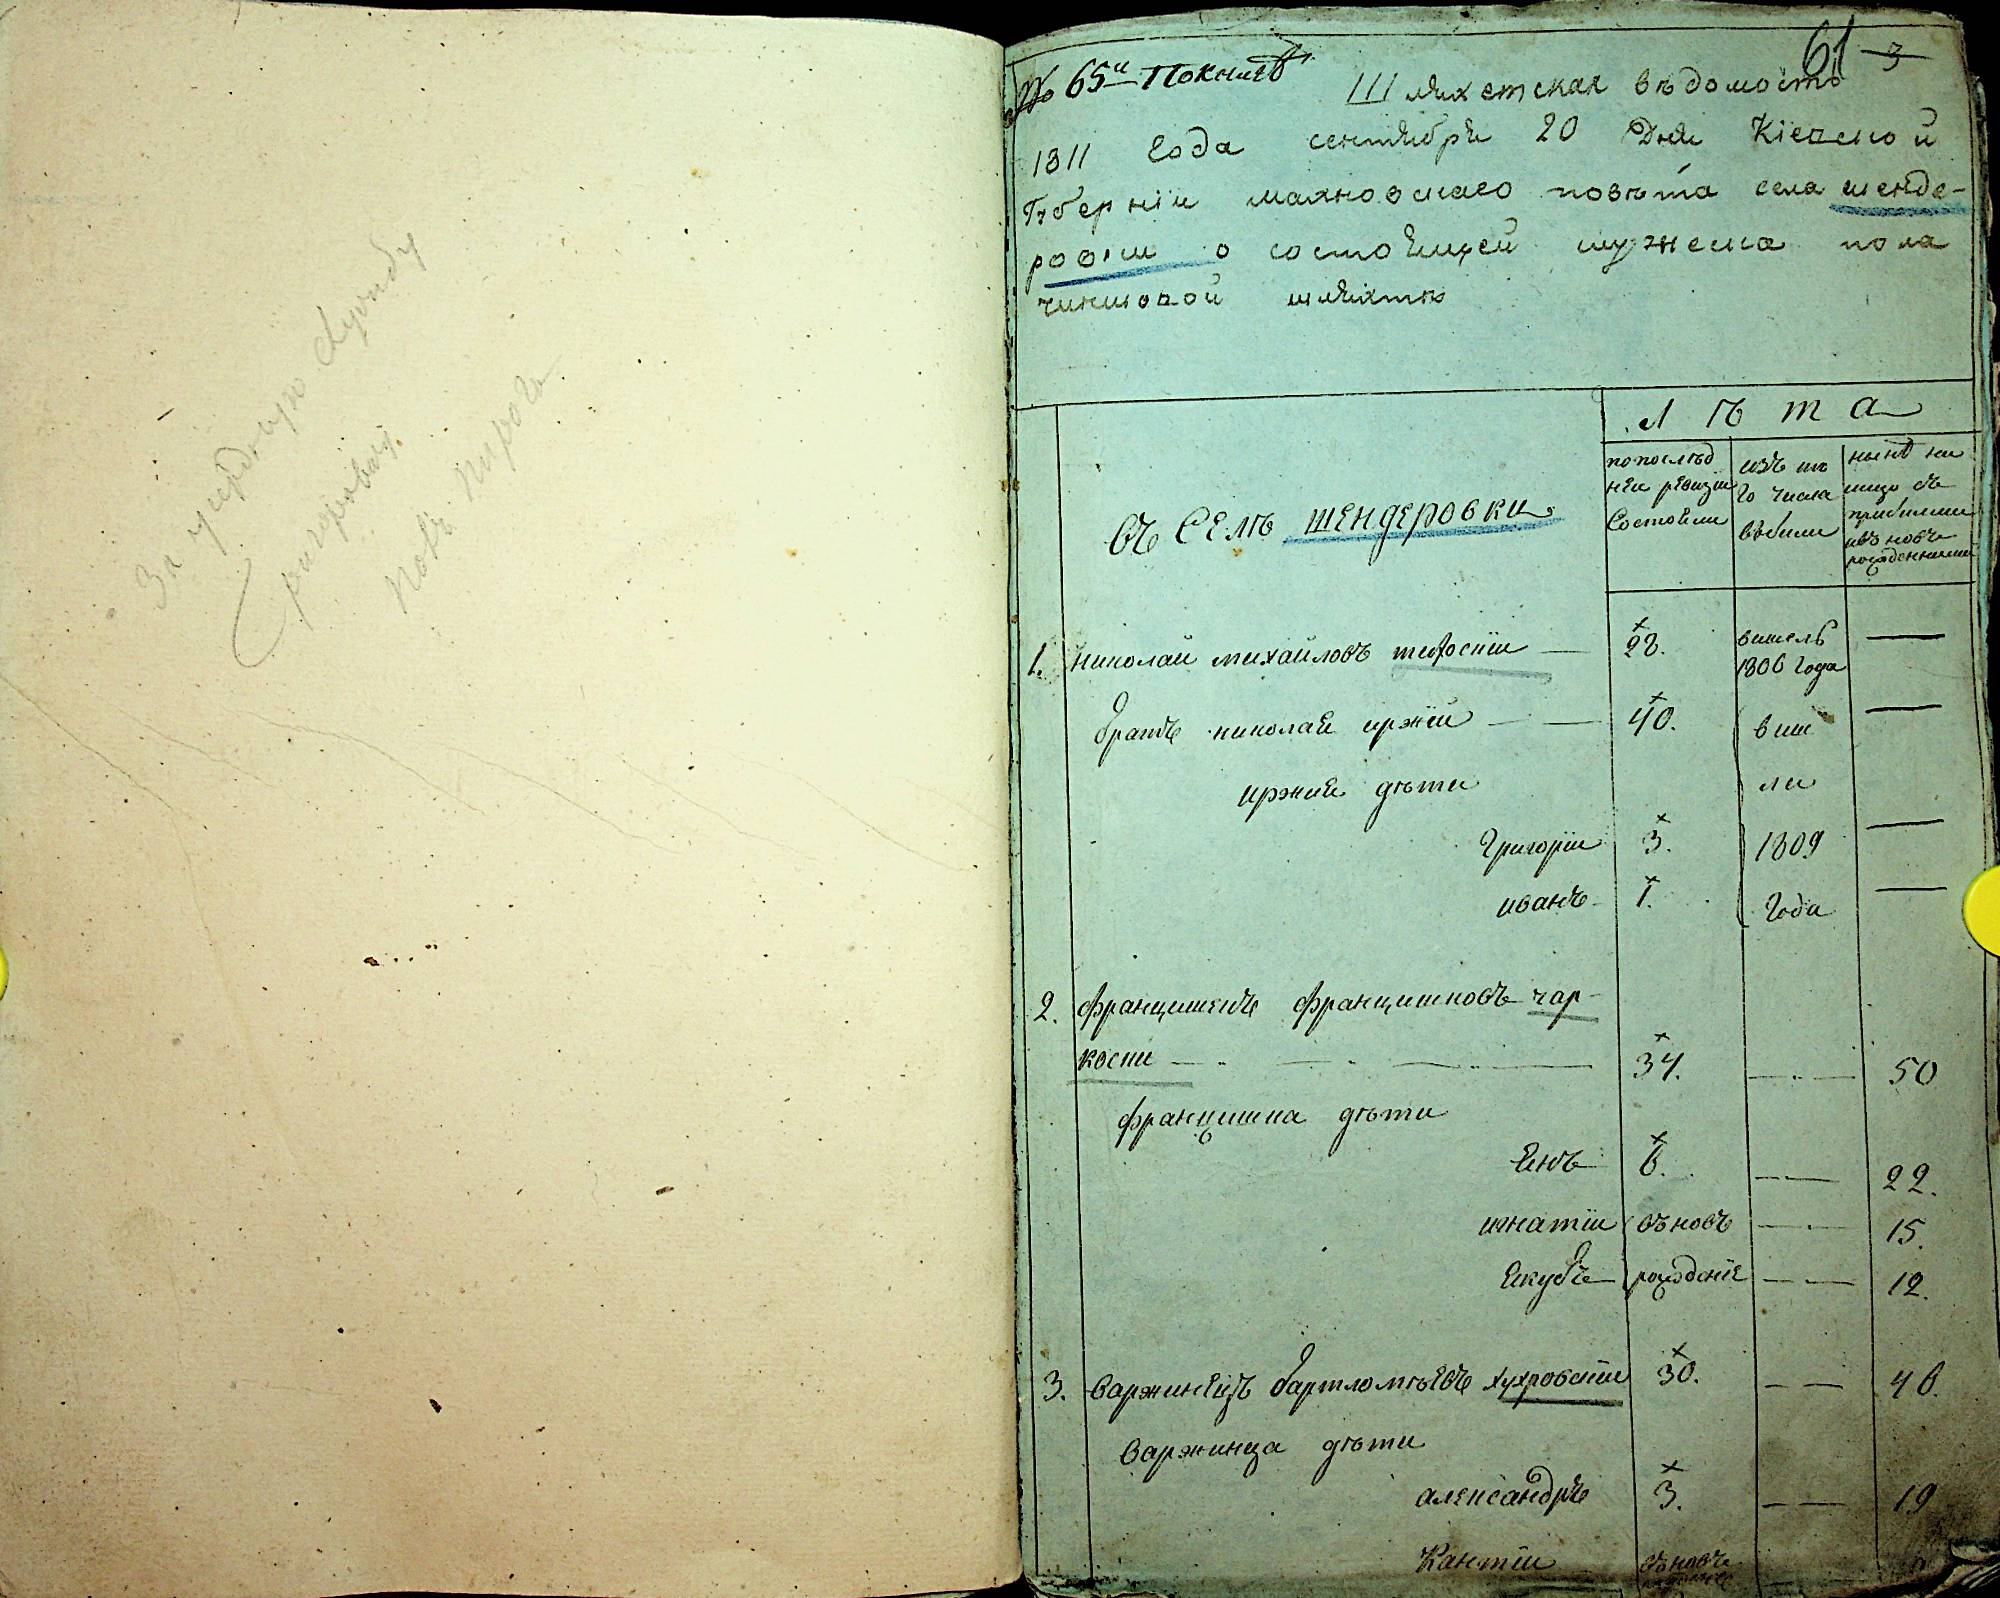 За усердную службу
Григоровая
повъ
61 3
№ 65й Покнигѣ
Шляхетская вѣдомость
1811 Года сентября 20 Дня Кіевской
Губерніи махновскаго повѣта села шенде-
ровки о состоящей мужеска пола
чиншовой шляхтѣ
Лѣта
въ Селѣ шендеровки
попослѣд
ней ревизіи
Состояли
изъ то
го числа
выбыли
нынѣ на
лицо съ
прибылими
изъ новъ
рожденними
1. николай михайловъ 28. вишелъ
1806 года
братъ николая ирэній 40. виш
ирэнія дѣти ли
Григорій 3. 1809
иванъ 1. Года
2. францишекъ францишковъ чар-
коски 34. 50
францишка дѣти
Янъ 6. 22.
игнатій въновъ 15.
Якубъ рожденіе 12.
3. Варжинецъ бартломѣевъ хухровскій 30. 46.
Варжинца дѣти
александръ 3. 19
Кантій въновъ